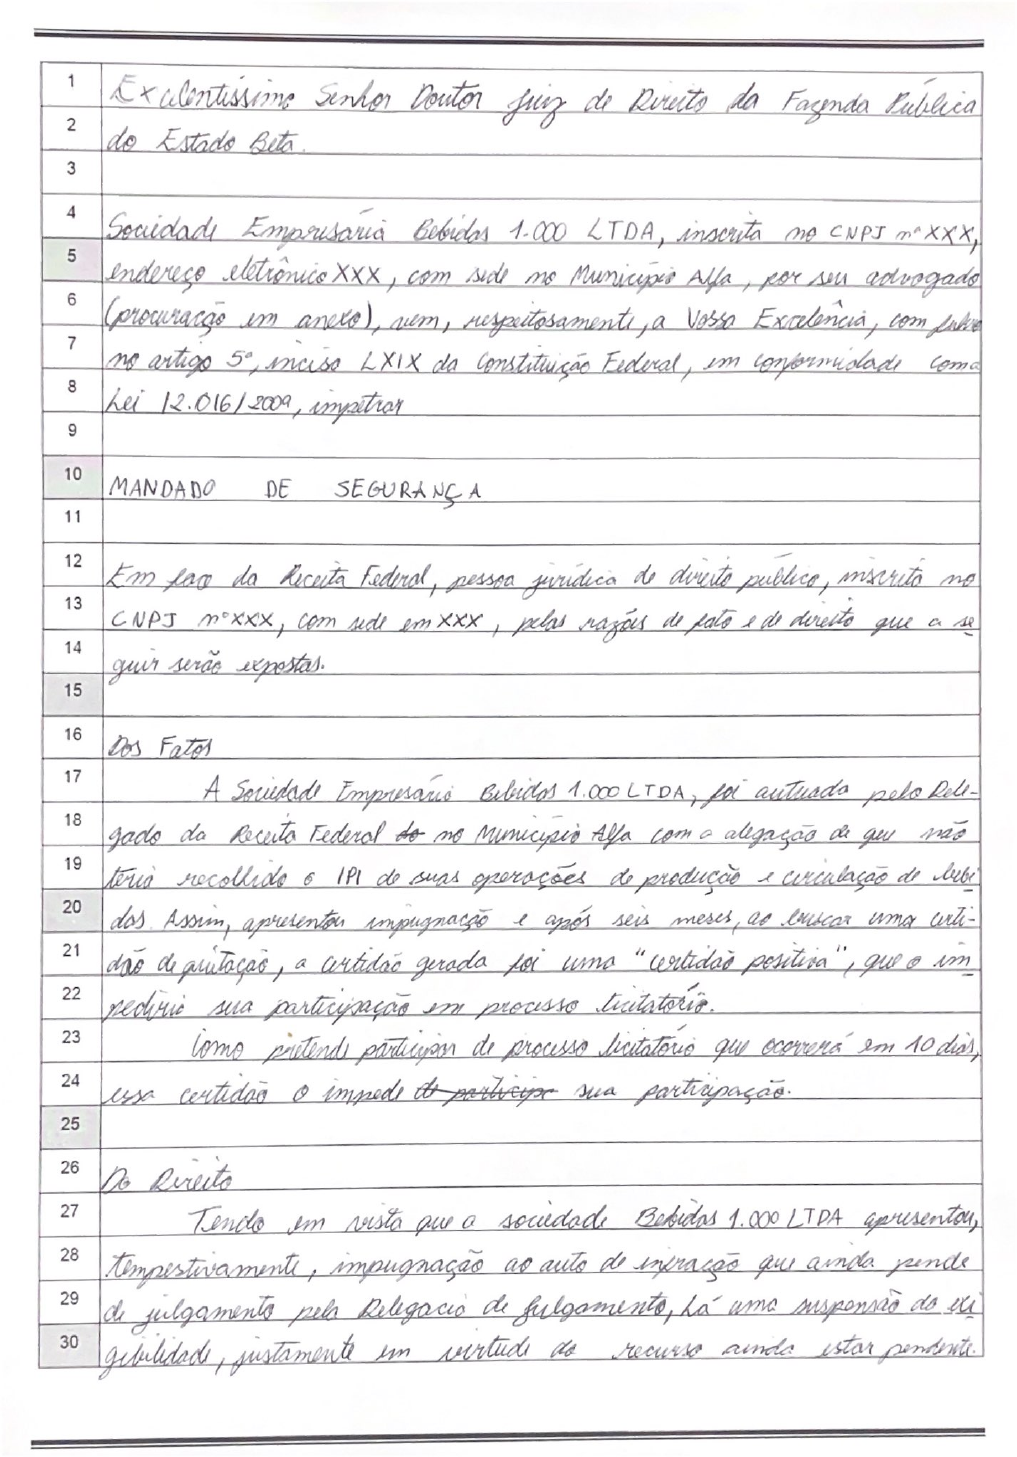 1 Excelentíssimo Senhor Doutor Juiz de Direito da Fazenda Pública
2 do Estado Beta.
3
4 Sociedade Empresária Bebidas 1.000 LTDA, inscrita no CNPJ nº XXX,
5 endereço eletrônico XXX, com sede no Município Alfa, por seu advogado
6 (procuração em anexo), vem, respeitosamente, a Vossa Excelência, com fulcro
7 no artigo 5º, inciso LXIX da Constituição Federal, em conformidade com a
8 Lei 12.016/2009, impetrar
9
10 MANDADO DE SEGURANÇA
11
12 Em face da Receita Federal, pessoa jurídica de direito público, inscrita no
13 CNPJ nº XXX, com sede em XXX, pelas razões de fato e de direito que a se
14 guir serão expostas.
15
16 Dos Fatos
17 A Sociedade Empresária Bebidas 1.000 LTDA, foi autuada pelo Dele-
18 gado da Receita Federal do no Município Alfa com a alegação de que não
19 teria recolhido o IPI de suas operações de produção e circulação de bebi
20 das. Assim, apresentou impugnação e após seis meses, ao buscar uma certi-
21 dão de quitação, a certidão gerada foi uma "certidão positiva", que o im
22 pediria sua participação em processo licitatório.
23 Como pretende participar de processo licitatório que ocorrerá em 10 dias,
24 essa certidão o impede de participr sua participação.
25
26 Do Direito
27 Tendo em vista que a sociedade Bebidas 1.000 LTDA apresentou,
28 tempestivamente, impugnação ao auto de infração que ainda pende
29 de julgamento pela Delegacia de Julgamento, há uma suspensão da exi
30 gibilidade, justamente em virtude do recurso ainda estar pendente.